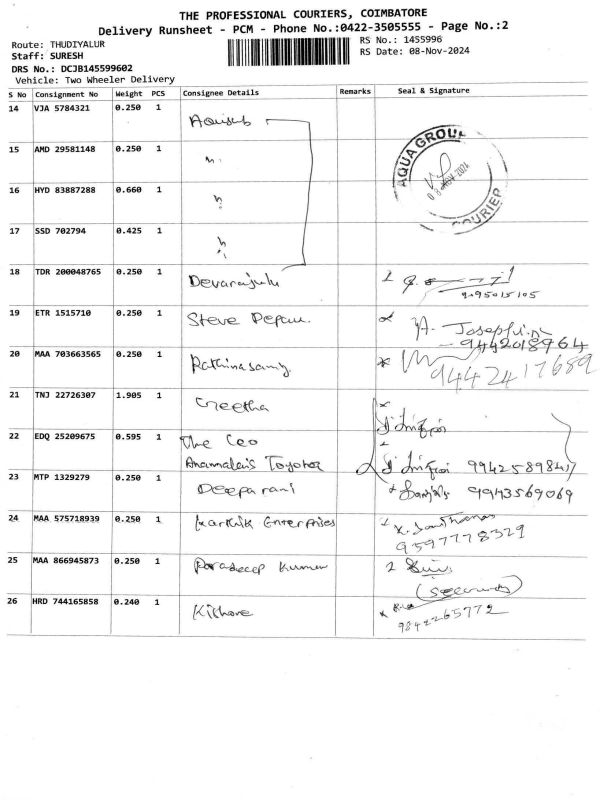 THE PROFESSIONAL COURIERS, COIMBATORE
Delivery Runsheet - PCM - Phone No.:0422-3505555 - Page No.:2
Route: THUDIYALUR
RS No.: 1455996
Staff: SURESH
RS Date: 08-Nov-2024
DRS No.: DCJB145599602
Vehicle: Two Wheeler Delivery
S No Consignment No Weight PCS Consignee Details Remarks Seal & Signature
14 VJA 5784321 0.250 1
AQUA GROUP
08 NOV 2024
COURIER
15 AMD 29581148 0.250 1 "
16 HYD 83887288 0.660 1 "
17 SSD 702794 0.425 1 "
18 TDR 200048765 0.250 1 Devarajulu
9095015105
19 ETR 1515710 0.250 1 Steve
Josephin
9442018964
20 MAA 703663565 0.250 1 Rathinasamy
9442417689
21 TNJ 22726307 1.905 1 Geetha
22 EDQ 25209675 0.595 1 The Ceo
Anamalais Toyota
23 MTP 1329279 0.250 1 Deepa rani 9943569069
24 MAA 575718939 0.250 1 Karthik Enterprises
9597778329
25 MAA 866945873 0.250 1 Pradeep Kumar
26 HRD 744165858 0.240 1 Kishore
9842265772